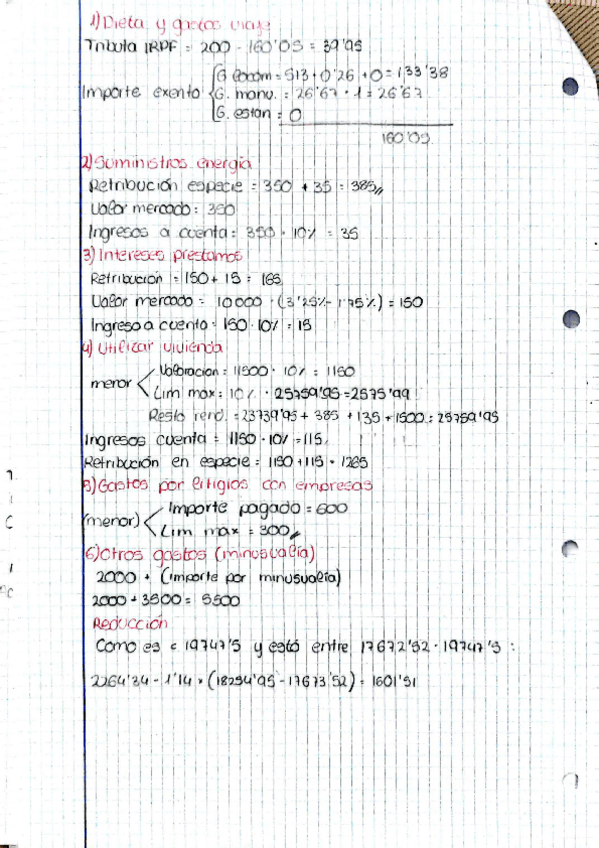 1) Dieta y gastos viaje
Tributa IRPF = 200 - 160'05 = 39'95
Importe exento { G. locom = 513 · 0'26 + 0 = 133'38
G. manu. = 26'67 · 1 = 26'67
G. estan = 0
160'05
2) Suministros energía
Retribución especie = 350 + 35 = 385
Valor mercado = 350
Ingresos a cuenta = 350 · 10% = 35
3) Intereses préstamos
Retribución = 150 + 15 = 165
Valor mercado = 10000 · (3'25% - 1'75%) = 150
Ingreso a cuenta = 150 · 10% = 15
4) Utilizar vivienda
menor < Valoración = 11500 · 10% = 1150
Lim max = 10% · 25759'95 = 2575'99
Resto rend. = 23739'95 + 385 + 135 + 1500 = 25759'95
Ingresos cuenta = 1150 · 10% = 115
Retribución en especie = 1150 + 115 = 1265
5) Gastos por litigios con empresas
(menor) < Importe pagado = 600
Lim max = 300
6) Otros gastos (minusvalía)
2000 + (importe por minusvalía)
2000 + 3500 = 5500
Reducción
Como es < 19747'5 y está entre 17673'52 - 19747'5 :
2264'34 - 1'14 × (18254'95 - 17673'52) = 1601'51